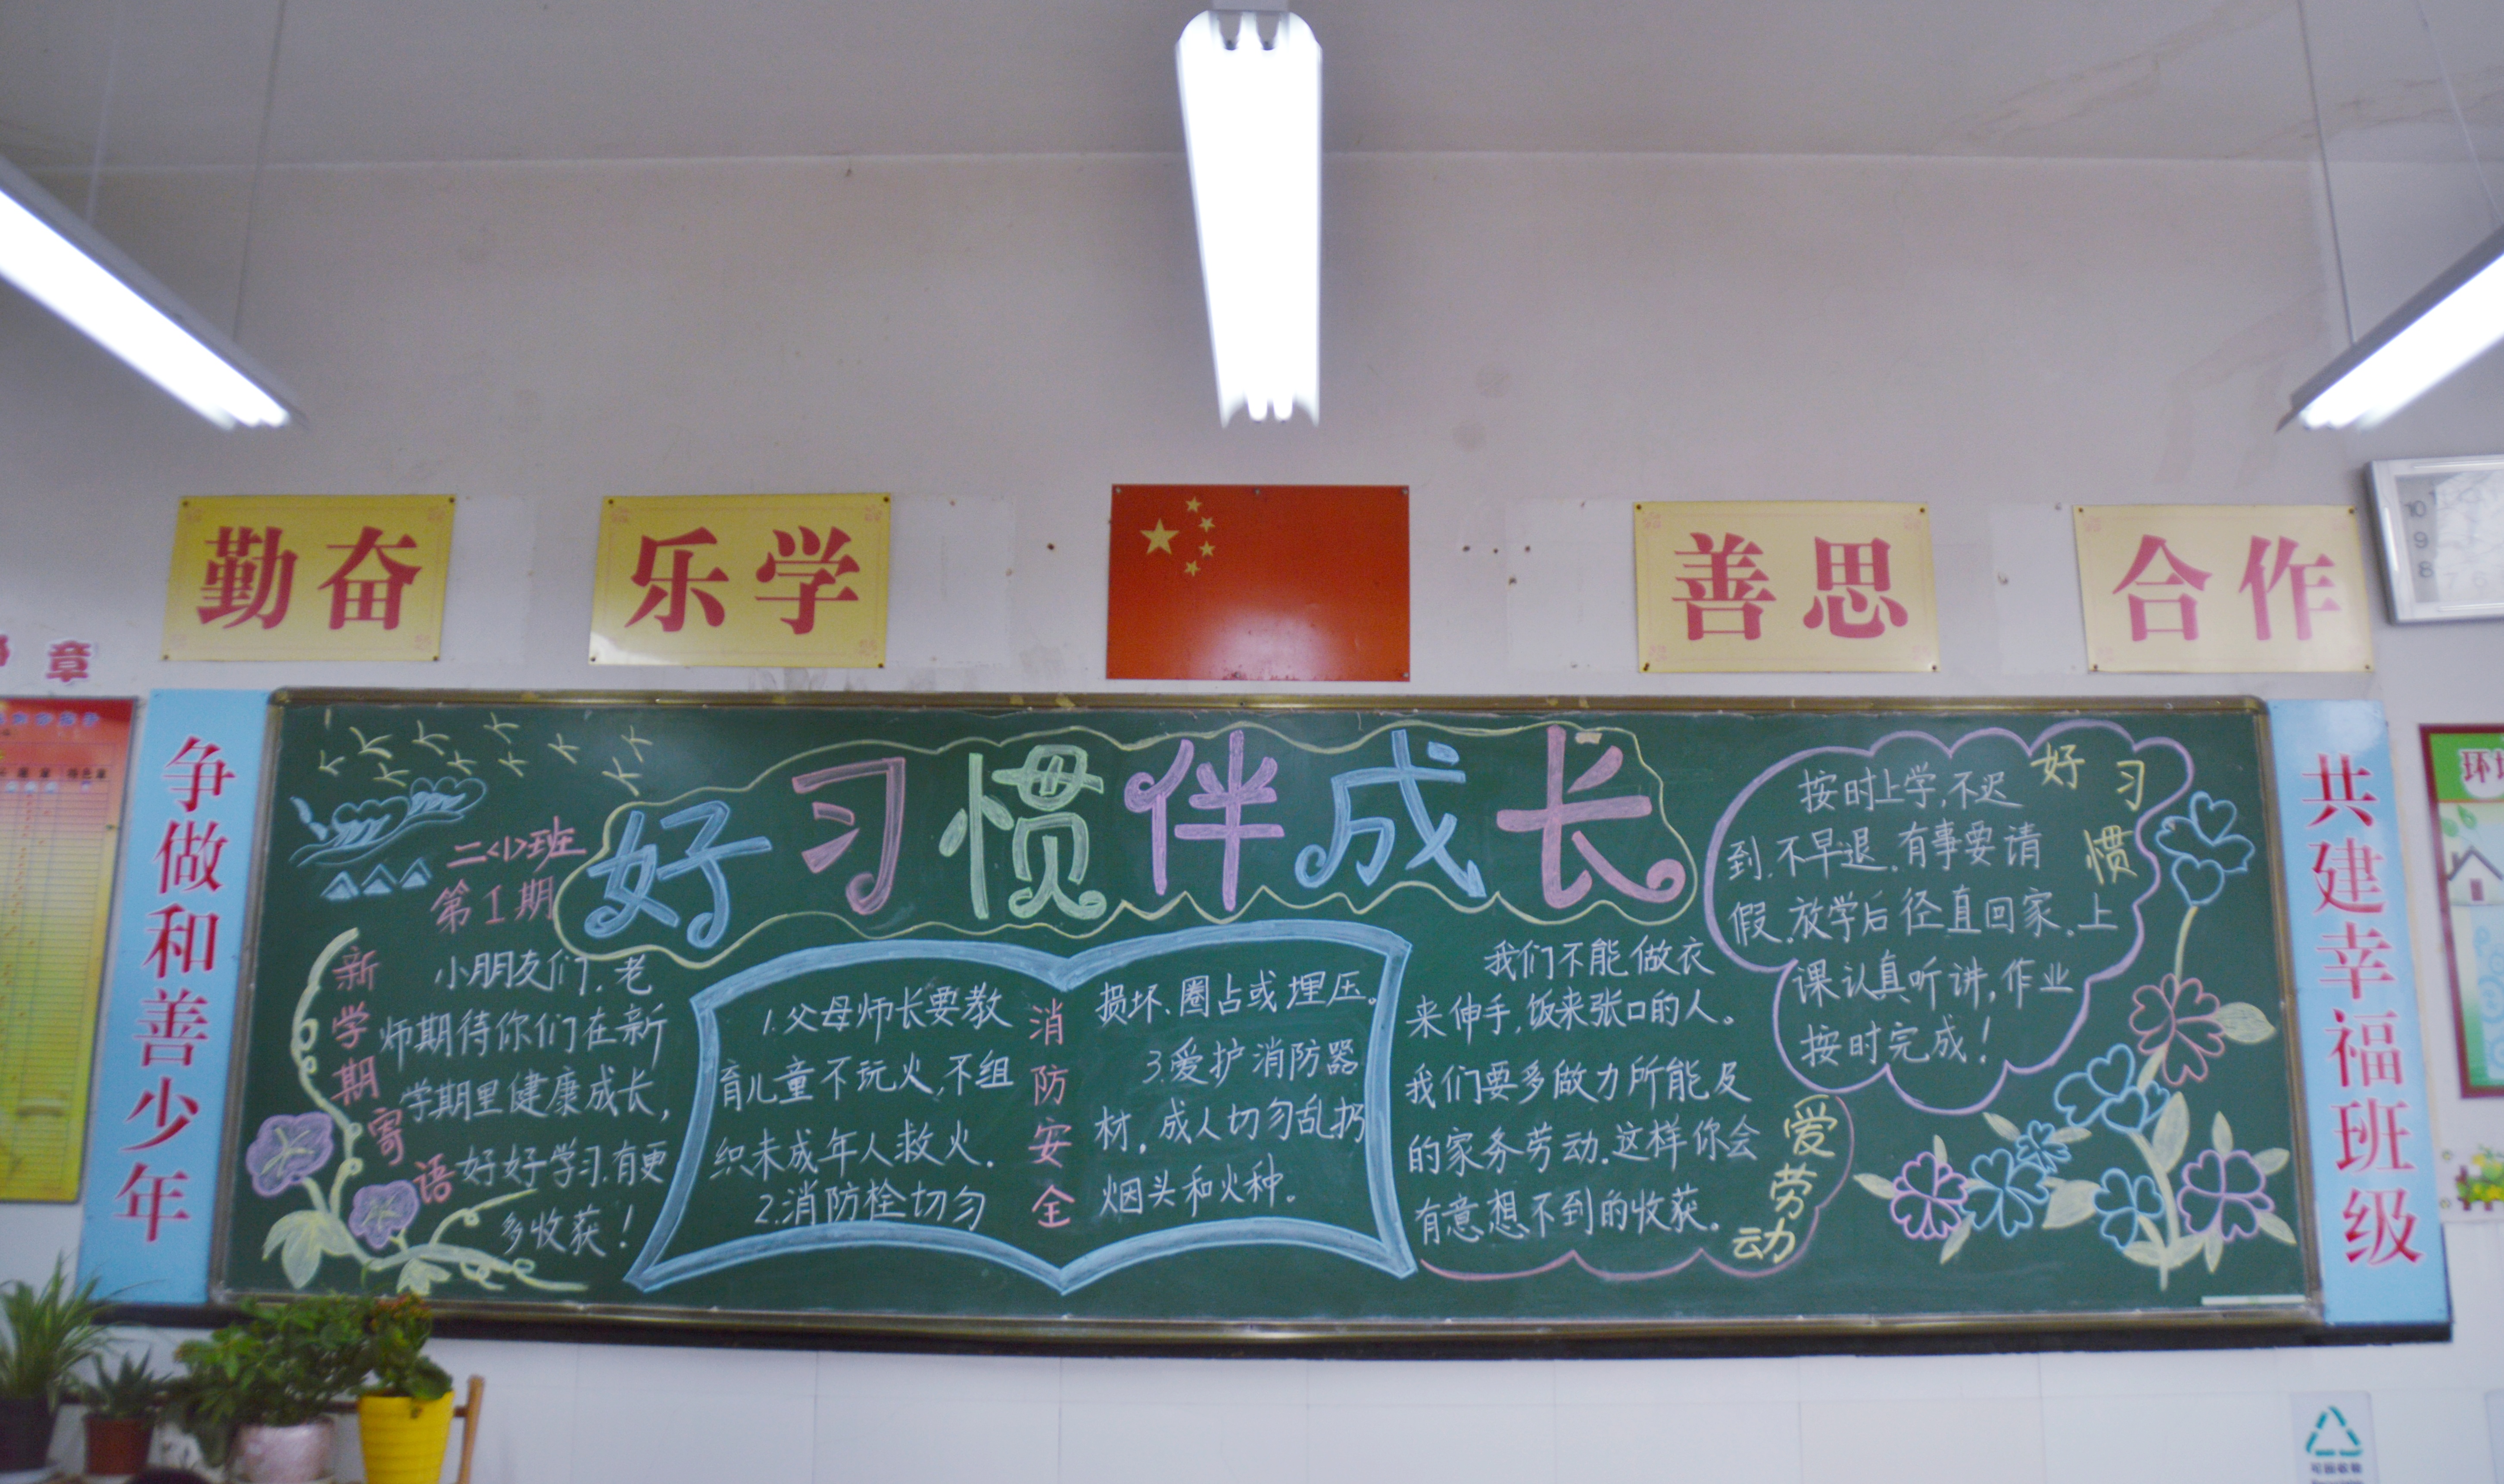 勤奋
乐学
善思
合作
章
10
9
8
7 6
争做和善少年
好习惯伴成长
二<1>班
第1期
新学期寄语
小朋友们,老
师期待你们在新
学期里健康成长,
好好学习.有更
多收获!
消防安全
1.父母师长要教
育儿童不玩火,不组
织未成年人救火.
2.消防栓切勿
损坏、圈占或埋压。
3.爱护消防器
材,成人切勿乱扔
烟头和火种。
我们不能做衣
来伸手,饭来张口的人。
我们要多做力所能及
的家务劳动.这样你会
有意想不到的收获。
爱劳动
好习惯
按时上学,不迟
到.不早退.有事要请
假.放学后径直回家.上
课认真听讲,作业
按时完成!
共建幸福班级
环
可回收物